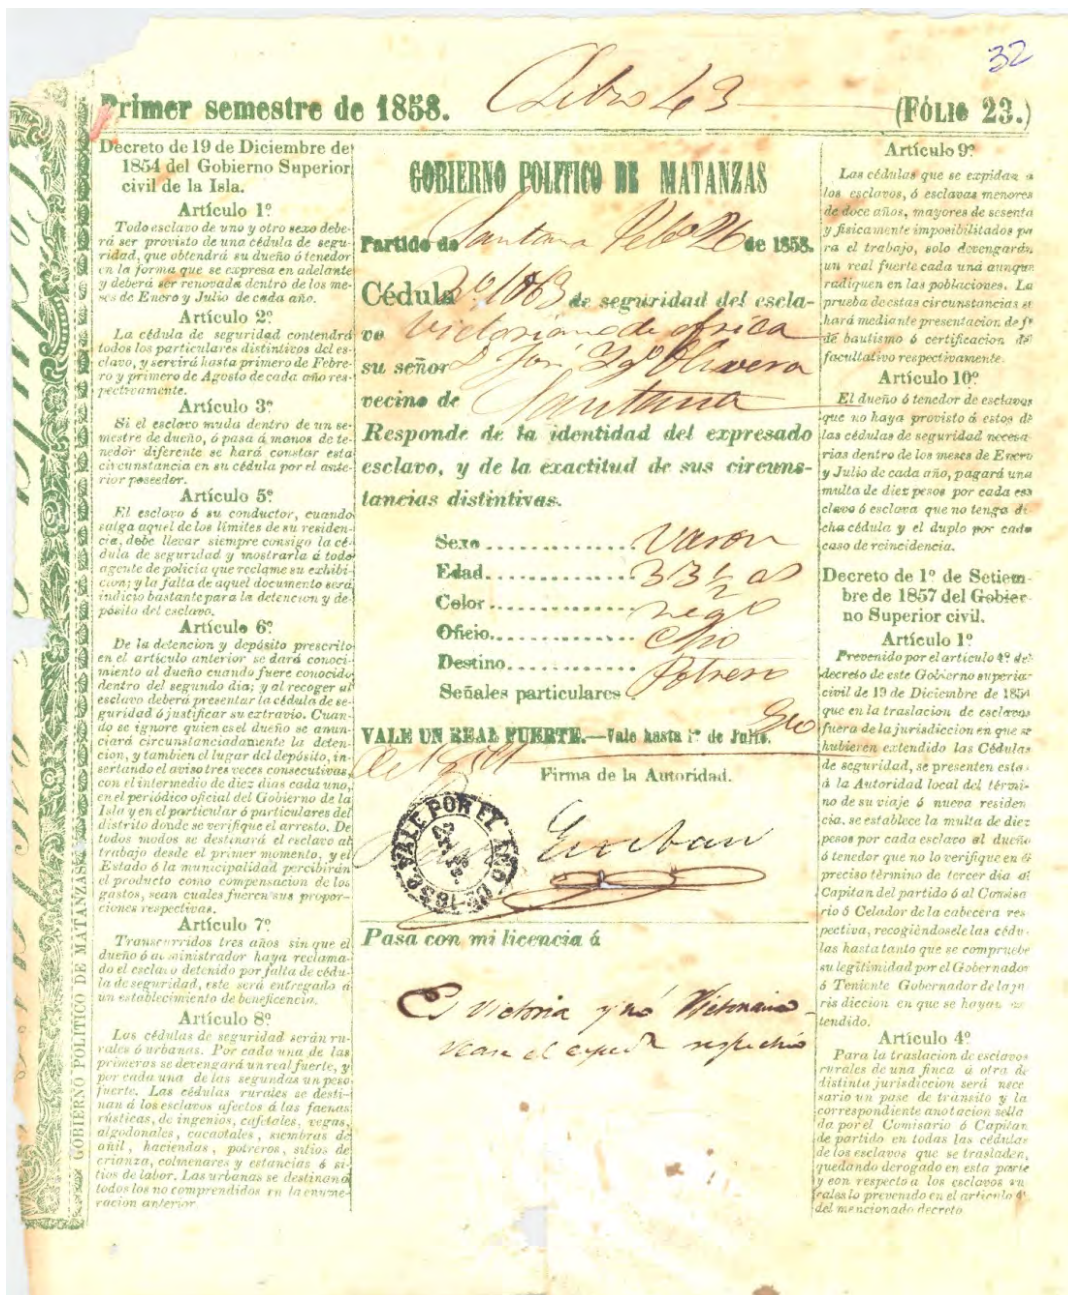 32
Libro 43
Primer semestre de 1858.
(FÓLIO 23.)
Decreto de 19 de Diciembre de
1854 del Gobierno Superior
civil de la Isla.
Artículo 1º
Todo esclavo de uno y otro sexo debe-
rá ser provisto de una cédula de segu-
ridad, que obtendrá su dueño ó tenedor
en la forma que se expresa en adelante
y deberá ser renovada dentro de los me-
ses de Enero y Julio de cada año.
Artículo 2º
La cédula de seguridad contendrá
todos los particulares distintivos del es-
clavo, y servirá hasta primero de Febre-
ro y primero de Agosto de cada año res-
pectivamente.
Artículo 3º
Si el esclavo muda dentro de un se-
mestre de dueño, ó pasa á manos de te-
nedor diferente se hará constar esta
circunstancia en su cédula por el ante-
rior poseedor.
Artículo 5º
El esclavo ó su conductor, cuando
salga aquel de los límites de su residen-
cia, debe llevar siempre consigo la cé-
dula de seguridad y mostrarla á todo
agente de policía que reclame su exhibi-
cion; y la falta de aquel documento será
indicio bastante para la detencion y de-
pósito del esclavo.
Artículo 6º
De la detencion y depósito prescrito
en el artículo anterior se dará conoci-
miento al dueño cuando fuere conocido
dentro del segundo dia; y al recoger al
esclavo deberá presentar la cédula de se-
guridad ó justificar su extravio. Cuan-
do se ignore quien es el dueño se anun-
ciará circunstanciadamente la deten-
cion, y tambien el lugar del depósito, in-
sertando el aviso tres veces consecutivas,
con el intermedio de diez dias cada uno,
en el periódico oficial del Gobierno de la
Isla y en el particular ó particulares del
distrito donde se verifique el arresto. De
todos modos se destinará el esclavo al
trabajo desde el primer momento, y el
Estado ó la municipalidad percibirán
el producto como compensacion de los
gastos, sean cuales fueren sus propor-
ciones respectivas.
Artículo 7º
Transcurridos tres años sin que el
dueño ó administrador haya reclama-
do el esclavo detenido por falta de cédu-
la de seguridad, este será entregado á
un establecimiento de beneficencia.
Artículo 8º
Las cédulas de seguridad serán ru-
rales ó urbanas. Por cada una de las
primeras se devengará un real fuerte, y
por cada una de las segundas un peso
fuerte. Las cédulas rurales se desti-
nan á los esclavos afectos á las faenas
rústicas, de ingenios, cafetales, vegas,
algodonales, cacaotales, siembras de
añil, haciendas, potreros, sitios de
crianza, colmenares y estancias ó si-
tios de labor. Las urbanas se destinan á
todos los no comprendidos en la enume-
racion anterior
GOBIERNO POLITICO DE MATANZAS
GOBIERNO POLITICO DE MATANZAS
Partido de Santana Febº 26 de 1858.
Cédula nº 1063 de seguridad del escla-
vo Victoriano de Africa
su señor D José Igº Olivera
vecino de Santana
Responde de la identidad del expresado
esclavo, y de la exactitud de sus circuns-
tancias distintivas.
Sexo............... Varon
Edad............... 33½ as
Color............... negro
Oficio...............
Destino............ Potrero
Señales particulares
VALE UN REAL FUERTE.—Vale hasta 1º de Julio.
Firma de la Autoridad.
VALE POR EL
Esteban
Pasa con mi licencia á
Es Victoria y nó Victoriano
vease el respectivo
Artículo 9º
Las cédulas que se expidan a
los esclavos, ó esclavas menores
de doce años, mayores de sesenta
y fisicamente imposibilitados pa
ra el trabajo, solo devengarán
un real fuerte cada una aunque
radiquen en las poblaciones. La
prueba de estas circunstancias se
hará mediante presentacion de fº
de bautismo ó certificacion de
facultativo respectivamente.
Artículo 10º
El dueño ó tenedor de esclavos
que no haya provisto á estos de
las cédulas de seguridad necesa-
rias dentro de los meses de Enero
y Julio de cada año, pagará una
multa de diez pesos por cada es
clavo ó esclava que no tenga di
cha cédula y el duplo por cada
caso de reincidencia.
Decreto de 1º de Setiem-
bre de 1857 del Gobier-
no Superior civil.
Artículo 1º
Prevenido por el artículo 4º del
decreto de este Gobierno superior
civil de 19 de Diciembre de 1854
que en la traslacion de esclavos
fuera de la jurisdiccion en que se
hubieren extendido las Cédulas
de seguridad, se presenten estas
á la Autoridad local del térmi-
no de su viaje ó nueva residen
cia, se establece la multa de diez
pesos por cada esclavo al dueño
ó tenedor que no lo verifique en el
preciso término de tercer dia al
Capitan del partido ó al Comisa
rio ó Celador de la cabecera res
pectiva, recogiéndosele las cédu-
las hasta tanto que se compruebe
su legitimidad por el Gobernador
ó Teniente Gobernador de la ju
risdiccion en que se hayan es-
tendido.
Artículo 4º
Para la traslacion de esclavos
rurales de una finca á otra de
distinta jurisdiccion será nece
sario un pase de tránsito y la
correspondiente anotacion sella
da por el Comisario ó Capitan
de partido en todas las cédulas
de los esclavos que se trasladen,
quedando derogado en esta parte
y con respecto a los esclavos ru
rales lo prevenido en el artículo 4º
del mencionado decreto